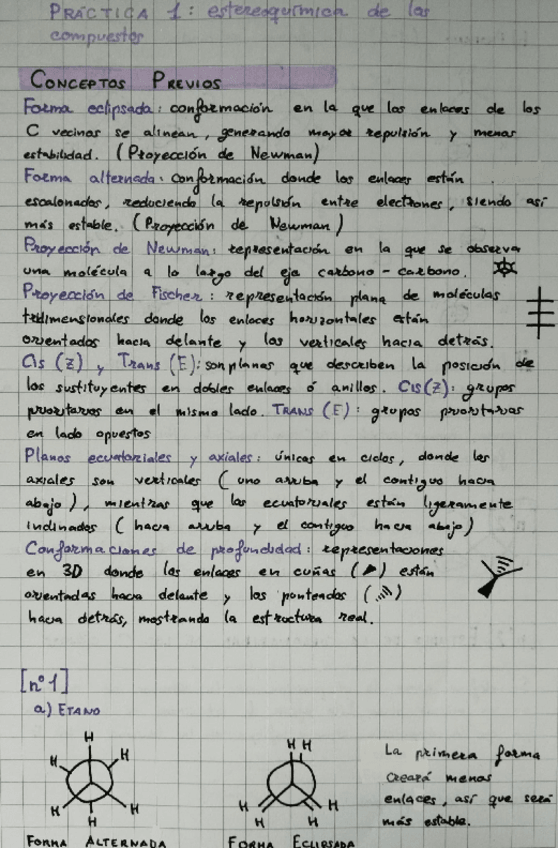 PRÁCTICA 1: estereoquímica de los
compuestos
CONCEPTOS PREVIOS
Forma eclipsada: conformación en la que los enlaces de los
C vecinos se alinean, generando mayor repulsión y menos
estabilidad. (Proyección de Newman)
Forma alternada: conformación donde los enlaces están
escalonados, reduciendo la repulsión entre electrones, siendo así
más estable. (Proyección de Newman)
Proyección de Newman: representación en la que se observa
una molécula a lo largo del eje carbono-carbono.
Proyección de Fischer: representación plana de moléculas
tridimensionales donde los enlaces horizontales están
orientados hacia delante y los verticales hacia detrás.
Cis (Z) y Trans (E): son planas que describen la posición de
los sustituyentes en dobles enlaces ó anillos. CIS(Z): grupos
prioritarios en el mismo lado. TRANS (E): grupos prioritarios
en lado opuestos
Planos ecuatoriales y axiales: únicas en ciclos, donde los
axiales son verticales (uno arriba y el contiguo hacia
abajo), mientras que los ecuatoriales están ligeramente
inclinados (hacia arriba y el contiguo hacia abajo)
Conformaciones de profundidad: representaciones
en 3D donde los enlaces en cuñas ( ) están
orientadas hacia delante y los punteados ( )
hacia detrás, mostrando la estructura real.
[nº1]
a) ETANO
H
H H
H H
H
H H
H H
H H
La primera forma
creará menos
enlaces, así que será
más estable.
FORMA ALTERNADA
FORMA ECLIPSADA